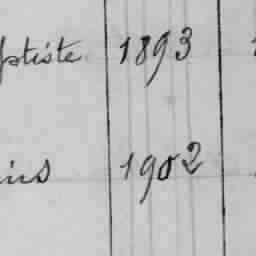 ptiste 1893
ins 1902